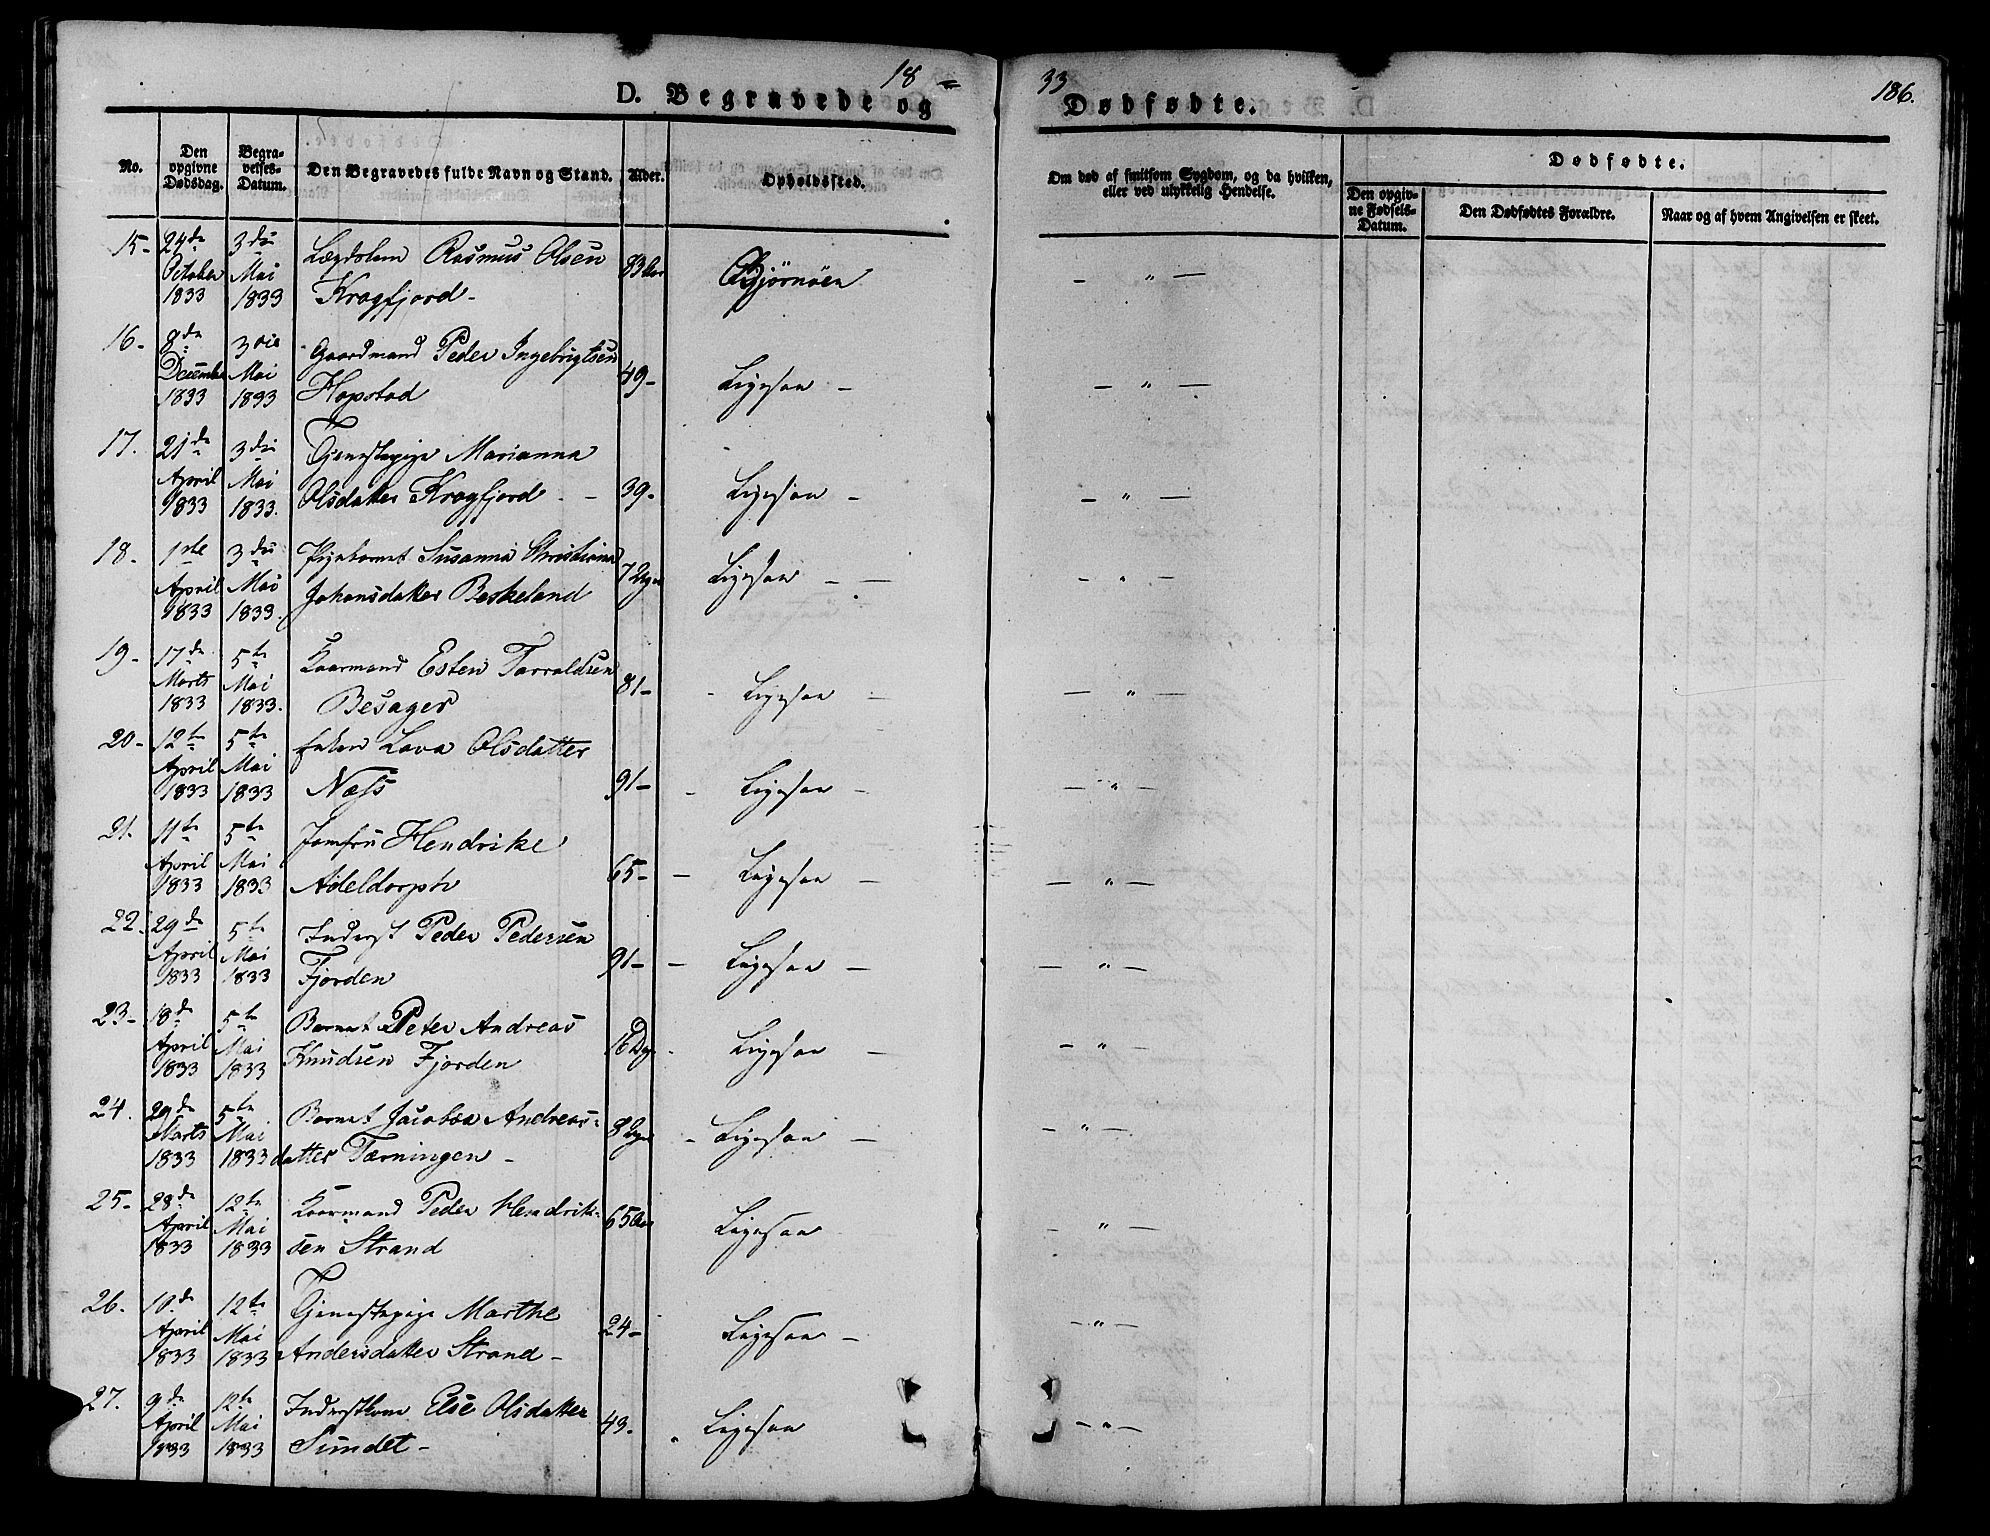 18 = 33
186.
D. Begravede og Dødfødte.
No.
Den opgivne Dødsdag.
Begravelses-Datum.
Den Begravedes fulde Navn og Stand.
Alder.
Opholdssted.
Om død af smitsom Sygdom, og da hvilken, eller ved ulykkelig Hendelse.
Dødfødte.
Den opgivne Fødsels-Datum.
Den Dødfødtes Forældre.
Naar og af hvem Angivelsen er skeet.
15- 24de 3die Lægdslem Rasmus Olsen 83 Aar Bjørnöen — " —
October Mai Kragfjord-
1833 1833
16- 8de 3die Gaardmand Peder Ingebrigtsen 49- Ligesaa — — " —
December Mai Hopstad
1833 1833
17. 21de 3die Tjenestepige Marianna
April Mai Olsdatter Kragfjord - - 39- Ligesaa — — " —
1833 1833.
18. 1ste 3die Pigebarnet Susanna Christiana 7 Uger Ligesaa — — — " —
April Mai Johansdatter Beskeland
1833 1833.
19- 17de 5te Kaarmand Esten Tarraldsen 81- - Ligesaa — — " —
Marts Mai Besager
1833 1833.
20- 12te 5te Enken Lava Olsdatter
April Mai Næss 91- - Ligesaa — — " —
1833 1833
21. 11te 5te Jomfru Hendrike
April Mai Adeldorph 65- - Ligesaa — — " —
1833 1833
22. 29de 5te Inderst Peder Pedersen 91- — Ligesaa — — " —
April Mai Fjorden
1833 1833
23- 18de 5te Barnet Peter Andreas
April Mai Knudsen Fjorden 16 Dge - Ligesaa — — " —
1833 1833
24. 29de 5te Barnet Jacobea Andreas- 8 Uger - Ligesaa — — " —
Marts Mai datter Tærningen -
1833 1833
25- 28de 12te Kaarmand Peder Hendrik- 65 Aar Ligesaa — " —
April Mai sen Strand
1833 1833
26. 10de 12te Tjenestepige Marthe 24- Ligesaa — — " —
April Mai Andersdatter Strand -
1833 1833
27. 9de 12te Inderstkone Else Olsdatter 43. " Ligesaa — " —
April Mai Sundet -
1833 1833